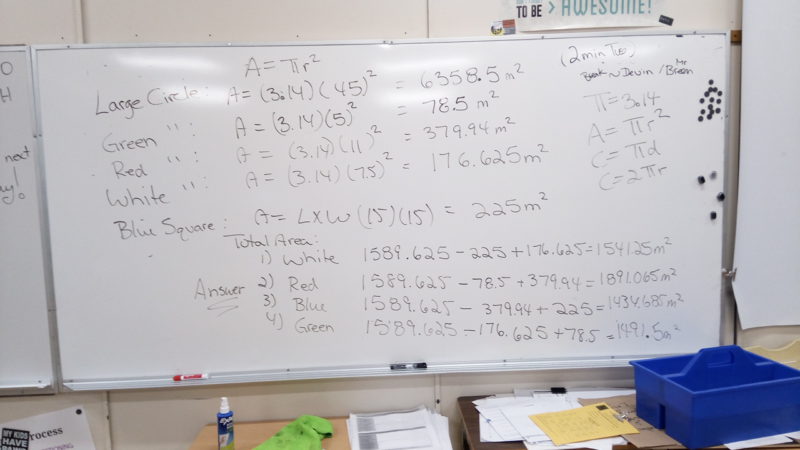 TO BE > AWESOME!
O
H
next
A = πr²
Large Circle: A = (3.14)(45)² = 6358.5 m²
Green " : A = (3.14)(5)² = 78.5 m²
Red " : A = (3.14)(11)² = 379.94 m²
White " : A = (3.14)(7.5)² = 176.625 m²
Blue Square: A = L×W (15)(15) = 225 m²
Total Area:
1) White 1589.625 - 225 + 176.625 = 1541.25 m²
Answer 2) Red 1589.625 - 78.5 + 379.94 = 1891.065 m²
3) Blue 1589.625 - 379.94 + 225 = 1434.685 m²
4) Green 1589.625 - 176.625 + 78.5 = 1491.5 m²
Devin / Mr
π = 3.14
A = πr²
C = πd
C = 2πr
MY KIDS
HAVE
rocess